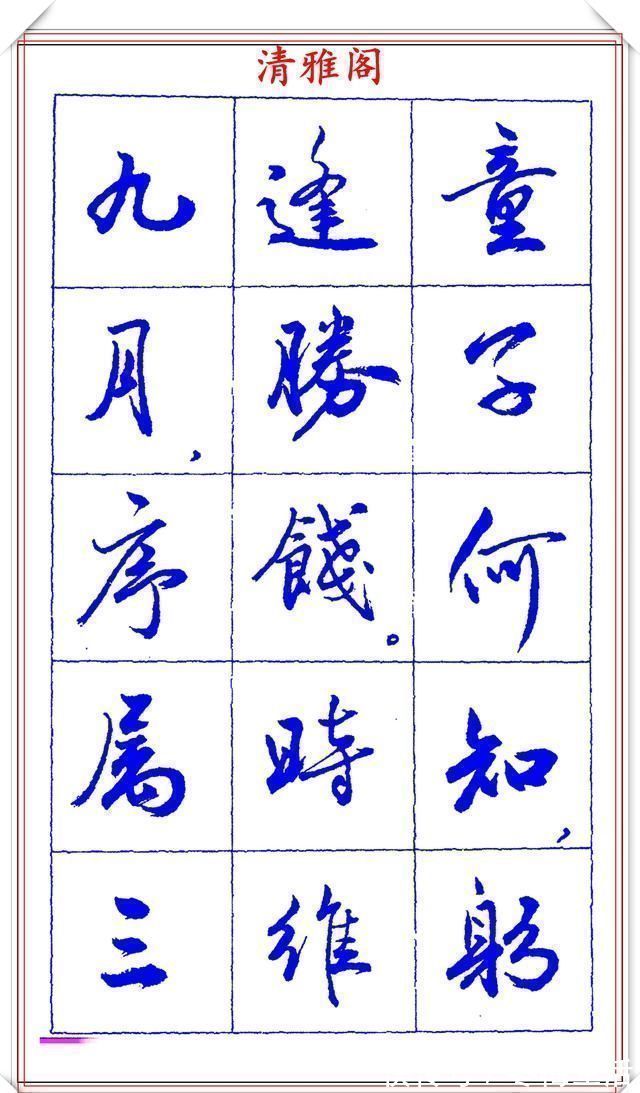 清雅阁
童子何知，躬
逢勝餞。時維
九月，序属三